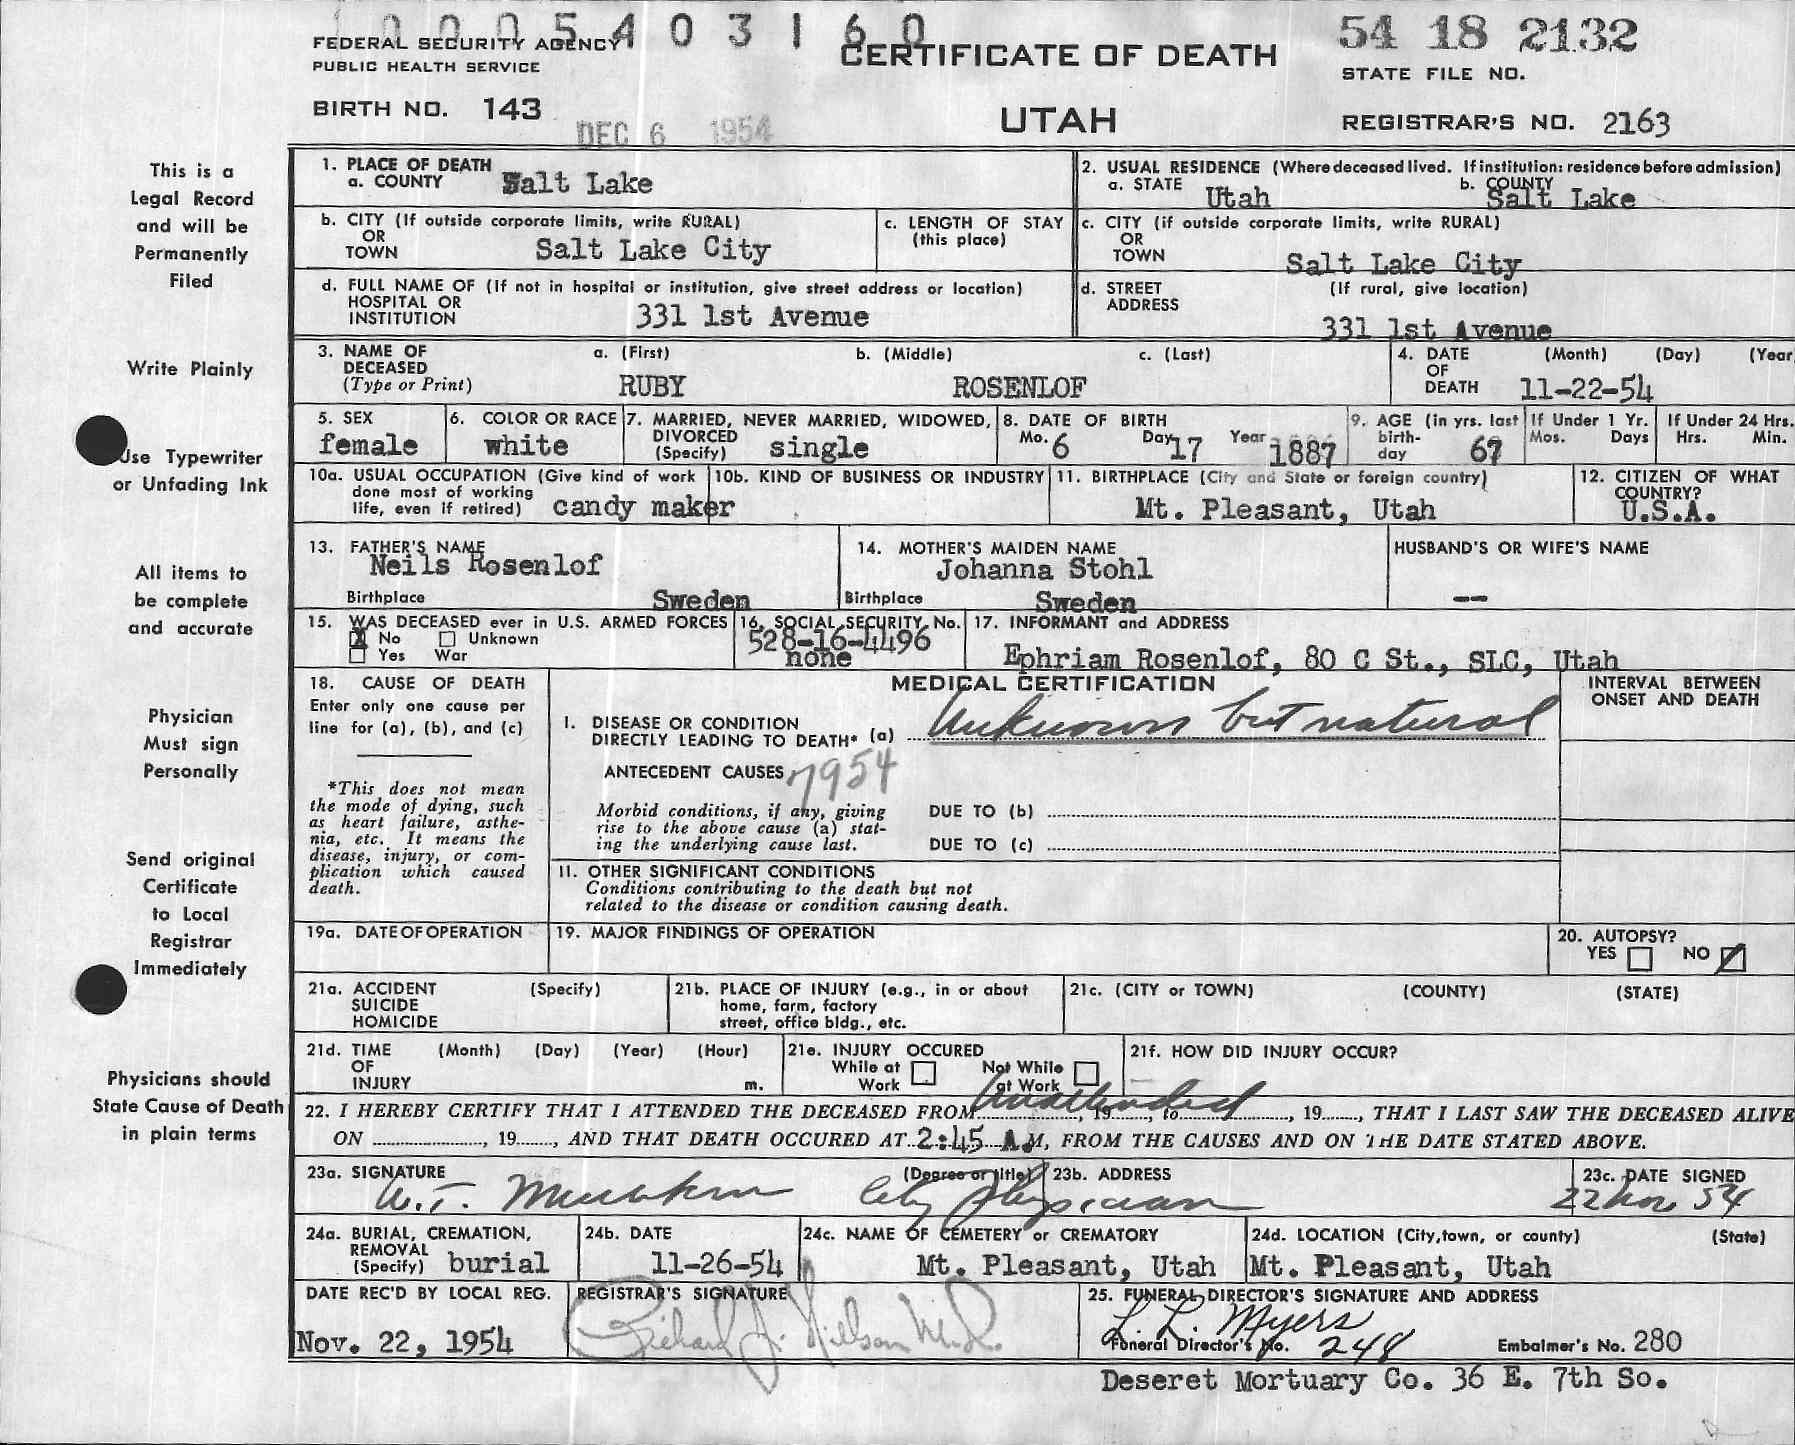 0005403160
54 18 2132
FEDERAL SECURITY AGENCY
PUBLIC HEALTH SERVICE
CERTIFICATE OF DEATH
STATE FILE NO.
BIRTH NO. 143
DEC 6 1954
UTAH
REGISTRAR'S NO. 2163
This is a
Legal Record
and will be
Permanently
Filed
Write Plainly
Use Typewriter
or Unfading Ink
All items to
be complete
and accurate
Physician
Must sign
Personally
Send original
Certificate
to Local
Registrar
Immediately
Physicians should
State Cause of Death
in plain terms
1. PLACE OF DEATH
a. COUNTY Salt Lake
2. USUAL RESIDENCE (Where deceased lived. If institution: residence before admission)
a. STATE Utah b. COUNTY Salt Lake
b. CITY (If outside corporate limits, write RURAL)
OR
TOWN Salt Lake City
c. LENGTH OF STAY
(this place)
c. CITY (if outside corporate limits, write RURAL)
OR
TOWN Salt Lake City
d. FULL NAME OF (If not in hospital or institution, give street address or location)
HOSPITAL OR
INSTITUTION 331 1st Avenue
d. STREET (If rural, give location)
ADDRESS
331 1st Avenue
3. NAME OF a. (First) b. (Middle) c. (Last)
DECEASED
(Type or Print) RUBY ROSENLOF
4. DATE (Month) (Day) (Year
OF
DEATH 11-22-54
5. SEX
female
6. COLOR OR RACE
white
7. MARRIED, NEVER MARRIED, WIDOWED,
DIVORCED
(Specify) single
8. DATE OF BIRTH
Mo. 6 Day 17 Year 1887
9. AGE (in yrs. last
birth-
day 67
If Under 1 Yr.
Mos. Days
If Under 24 Hrs.
Hrs. Min.
10a. USUAL OCCUPATION (Give kind of work
done most of working
life, even if retired) candy maker
10b. KIND OF BUSINESS OR INDUSTRY
11. BIRTHPLACE (City and State or foreign country)
Mt. Pleasant, Utah
12. CITIZEN OF WHAT
COUNTRY?
U.S.A.
13. FATHER'S NAME
Neils Rosenlof
Birthplace Sweden
14. MOTHER'S MAIDEN NAME
Johanna Stohl
Birthplace Sweden
HUSBAND'S OR WIFE'S NAME
--
15. WAS DECEASED ever in U.S. ARMED FORCES
X No Unknown
Yes War
16. SOCIAL SECURITY No.
528-16-4496
none
17. INFORMANT and ADDRESS
Ephriam Rosenlof, 80 C St., SLC, Utah
18. CAUSE OF DEATH
Enter only one cause per
line for (a), (b), and (c)
*This does not mean
the mode of dying, such
as heart failure, asthe-
nia, etc. It means the
disease, injury, or com-
plication which caused
death.
MEDICAL CERTIFICATION
INTERVAL BETWEEN
ONSET AND DEATH
I. DISEASE OR CONDITION
DIRECTLY LEADING TO DEATH* (a) Unknown but natural
ANTECEDENT CAUSES 7954
Morbid conditions, if any, giving
rise to the above cause (a) stat-
ing the underlying cause last.
DUE TO (b)
DUE TO (c)
11. OTHER SIGNIFICANT CONDITIONS
Conditions contributing to the death but not
related to the disease or condition causing death.
19a. DATE OF OPERATION
19. MAJOR FINDINGS OF OPERATION
20. AUTOPSY?
YES NO
21a. ACCIDENT (Specify)
SUICIDE
HOMICIDE
21b. PLACE OF INJURY (e.g., in or about
home, farm, factory
street, office bldg., etc.
21c. (CITY or TOWN) (COUNTY) (STATE)
21d. TIME (Month) (Day) (Year) (Hour)
OF
INJURY m.
21e. INJURY OCCURED
While at Not While
Work at Work
21f. HOW DID INJURY OCCUR?
22. I HEREBY CERTIFY THAT I ATTENDED THE DECEASED FROM Unattended, 19, to, 19, THAT I LAST SAW THE DECEASED ALIVE
ON, 19, AND THAT DEATH OCCURED AT 2:45 A.M, FROM THE CAUSES AND ON THE DATE STATED ABOVE.
23a. SIGNATURE (Degree or title)
W.T. City Physician
23b. ADDRESS
23c. DATE SIGNED
22 Nov 54
24a. BURIAL, CREMATION,
REMOVAL
(Specify) burial
24b. DATE
11-26-54
24c. NAME OF CEMETERY or CREMATORY
Mt. Pleasant, Utah
24d. LOCATION (City, town, or county) (State)
Mt. Pleasant, Utah
DATE REC'D BY LOCAL REG.
Nov. 22, 1954
REGISTRAR'S SIGNATURE
Richard J. Nillson M.D.
25. FUNERAL DIRECTOR'S SIGNATURE AND ADDRESS
L. L. Myers
Funeral Director's No. 248 Embalmer's No. 280
Deseret Mortuary Co. 36 E. 7th So.